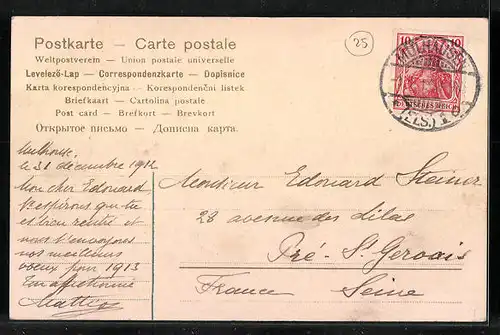 Postkarte — Carte postale
Weltpostverein — Union postale universelle
Levelező-Lap — Correspondenzkarte — Dopisnice
Karta korespondencyjna — Korespondenční listek
Briefkaart — Cartolina postale
Post card — Brefkort — Brevkort
Открытое письмо — Дописна карта.
25
10 10
MÜLHAUSEN
DEUTSCHES REICH
(ELS.)
Mulhouse,
le 31 décembre 1912
Mon cher Edouard
N. espérons que tu
es bien rentré et
nous t'envoyons
nos meilleurs
voeux pour 1913
Monsieur Edouard Steiner
28 avenue des lilas
Pré-St. Gervais
France Seine